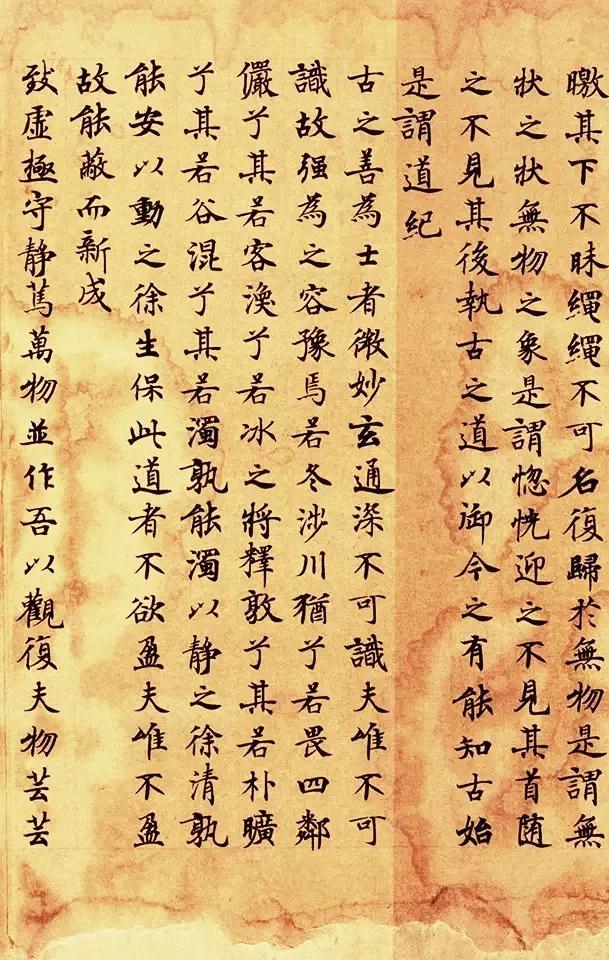 曒其下不昧繩繩不可名復歸於無物是謂無
狀之狀無物之象是謂惚恍迎之不見其首随
之不見其後執古之道以御今之有能知古始
是謂道紀
古之善為士者微妙玄通深不可識夫唯不可
識故强為之容豫焉若冬涉川猶兮若畏四鄰
儼兮其若客渙兮若冰之將釋敦兮其若朴曠
兮其若谷混兮其若濁孰能濁以静之徐清孰
能安以動之徐生保此道者不欲盈夫唯不盈
故能蔽而新成
致虛極守静篤萬物並作吾以觀復夫物芸芸